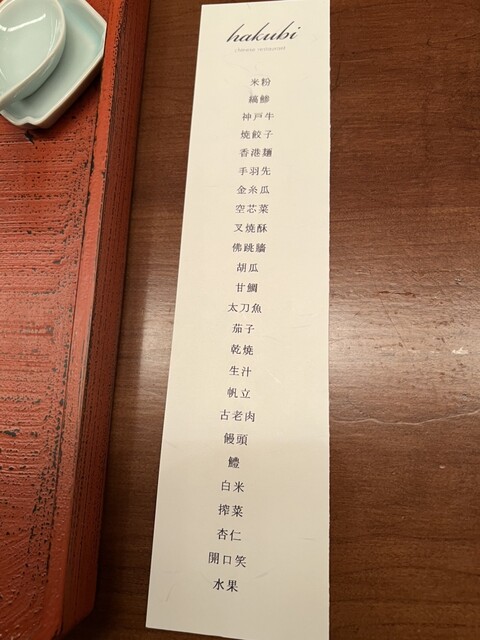 hakubi
chinese restaurant
米粉
縞鯵
神戸牛
焼餃子
香港麺
手羽先
金糸瓜
空芯菜
叉焼酥
佛跳牆
胡瓜
甘鯛
太刀魚
茄子
乾焼
生汁
帆立
古老肉
饅頭
鱧
白米
搾菜
杏仁
開口笑
水果